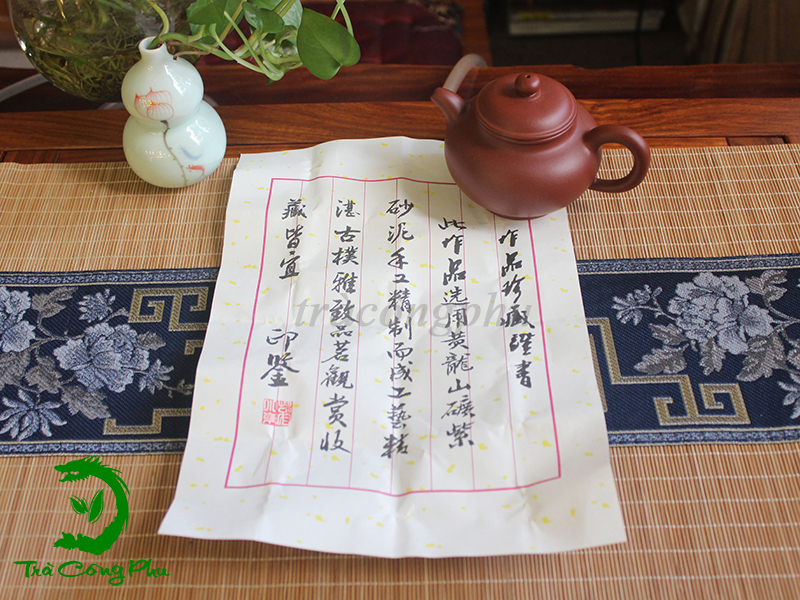 作品珍藏證書
此作品选用黄龍山礦紫
砂泥手工精制而成工藝精
湛古樸雅致品茗觀赏收
藏皆宜
印鑒
tràcôngphu
Trà Công Phu